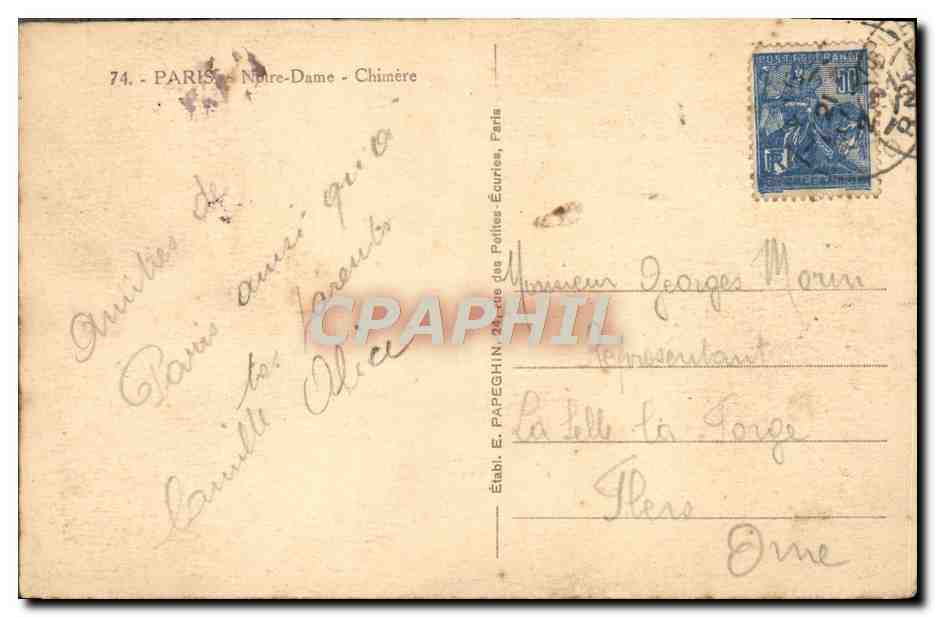 74. - PARIS - Notre-Dame - Chimère
Amitiés de
Paris ainsi qu'à
tes parents
Camille Alice
Établ. E. PAPEGHIN, 24, rue des Petites-Écuries, Paris
POSTES FRANCE
50
Monsieur Georges Morin
représentant
La Selle la Forge
Flers
Orne
CPAPHIL